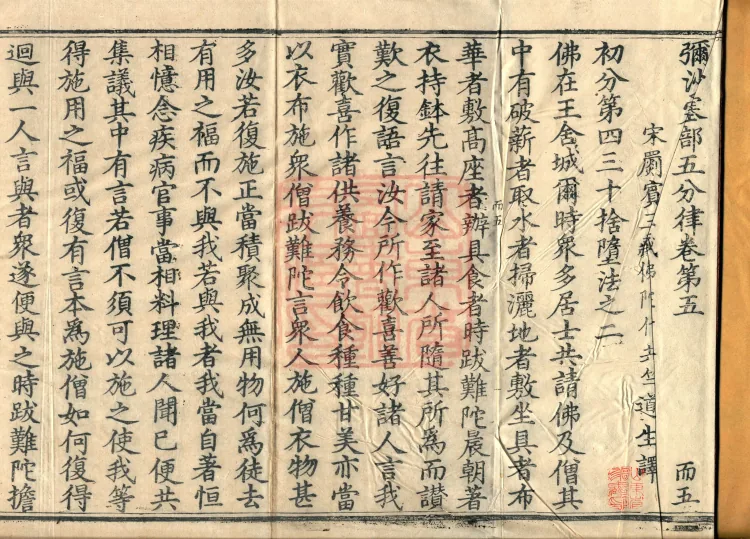 彌沙塞部五分律卷第五
而五
宋罽賓三藏佛陀什共竺道生譯
初分第四三十捨墮法之二
佛在王舍城爾時眾多居士共請佛及僧其
中有破薪者取水者掃灑地者敷坐具者布
華者敷高座者辦具食者時跋難陀晨朝著
而五
衣持鉢先往請家至諸人所隨其所為而讚
歎之復語言汝今所作歡喜善好諸人言我
實歡喜作諸供養務令飲食種種甘美亦當
以衣布施眾僧跋難陀言眾人施僧衣物甚
多汝若復施正當積聚成無用物何為徒去
有用之福而不與我若與我者我當自著恒
相憶念疾病官事當相料理諸人聞已便共
集議其中有言若僧不須可以施之使我等
得施用之福或復有言本為施僧如何復得
迴與一人言與者眾遂便與之時跋難陀擔